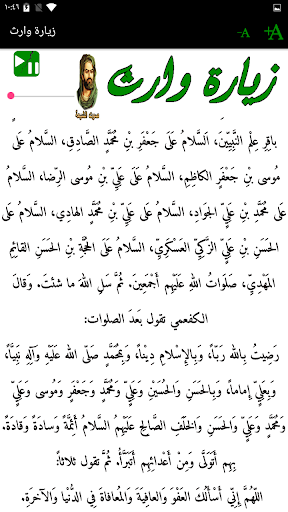 ١٠:٤٦
زيارة وارث
-A
+A
زيارة وارث
باقِرِ عِلْمِ النَّبِيِّينَ، اَلسَّلامُ عَلَى جَعْفَرِ بْنِ مُحَمَّدٍ الصَّادِقِ، السَّلامُ عَلَى
مُوسَى بْنِ جَعْفَرٍ الكاظِمِ، السَّلامُ عَلَى عَلِيِّ بْنِ مُوسَى الرِّضا، السَّلامُ
عَلَى مُحَمَّدِ بْنِ عَلِيٍّ الجَوادِ، السَّلامُ عَلَى عَلِيِّ بْنِ مُحَمَّدٍ الهادِي، السَّلامُ عَلَى
الحَسَنِ بْنِ عَلِيٍّ الزَّكِيِّ العَسْكَرِيِّ، السَّلامُ عَلَى الحُجَّةِ بْنِ الحَسَنِ القائِمِ
المَهْدِيِّ، صَلَواتُ اللهِ عَلَيْهِم أَجْمَعِينَ. ثُمَّ سَلِ اللهَ ما شئتَ. وَقالَ
الكفعمي تقول بَعدَ الصلوات:
رَضِيتُ بِالله رَبّاً، وَبِالإِسْلامِ دِيْناً، وَبِمُحَمَّدٍ صَلّى اللهُ عَلَيْهِ وَآلِهِ نَبِيّاً،
وَبِعَلِيٍّ إِماماً، وَبِالحَسَنِ وَالحُسَيْنِ وَعَلِيٍّ وَمُحَمَّدٍ وَجَعْفَرٍ وَمُوسى وَعَلِيٍّ
وَمُحَمَّدٍ وَعَلِيٍّ وَالحَسَنِ وَالخَلَفِ الصَّالِحِ عَلَيْهِمُ السَّلامُ أَئِمَّةً وَسادَةً وَقادَةً.
بِهِم أَتَوَلَّى وَمِنْ أَعْدائِهِم أَتَبَرَّأُ. ثُمَّ تقول ثلاثاً:
اللّهُمَّ إِنِّي أَسْأَلُكَ العَفْوَ وَالعافِيَةَ وَالمُعافاةَ فِي الدُّنْيا وَالآخِرَةِ.